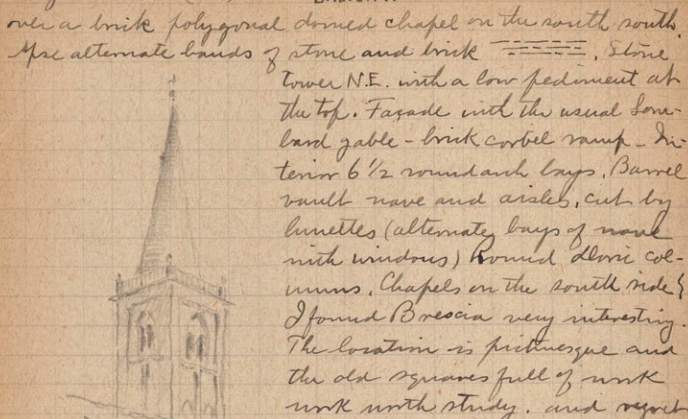 over a brick polygonal domed chapel on the south south.
Apse alternate bands of stone and brick . Stone
tower N.E. with a low pediment at
the top. Façade with the usual Lom-
bard gable - brick corbel ramp - In-
terior 6 1/2 round arch bays. Barrel
vault nave and aisles, cut by
lunettes (alternate bays of nave
with windows) Round Doric col-
umns. Chapels on the south side
I found Brescia very interesting.
The location is picturesque and
the old squares full of work
work worth study. and regret